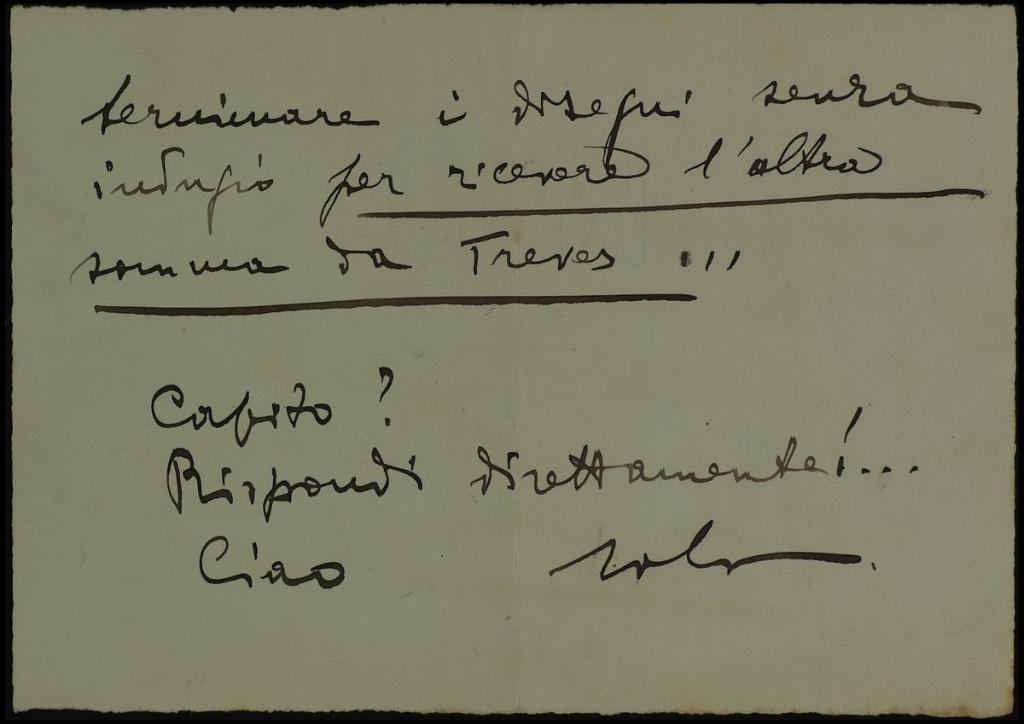 terminare i disegni senza
indugio per ricevere l'altra
somma da Treves ...
Capito?
Rispondi direttamente!...
Ciao